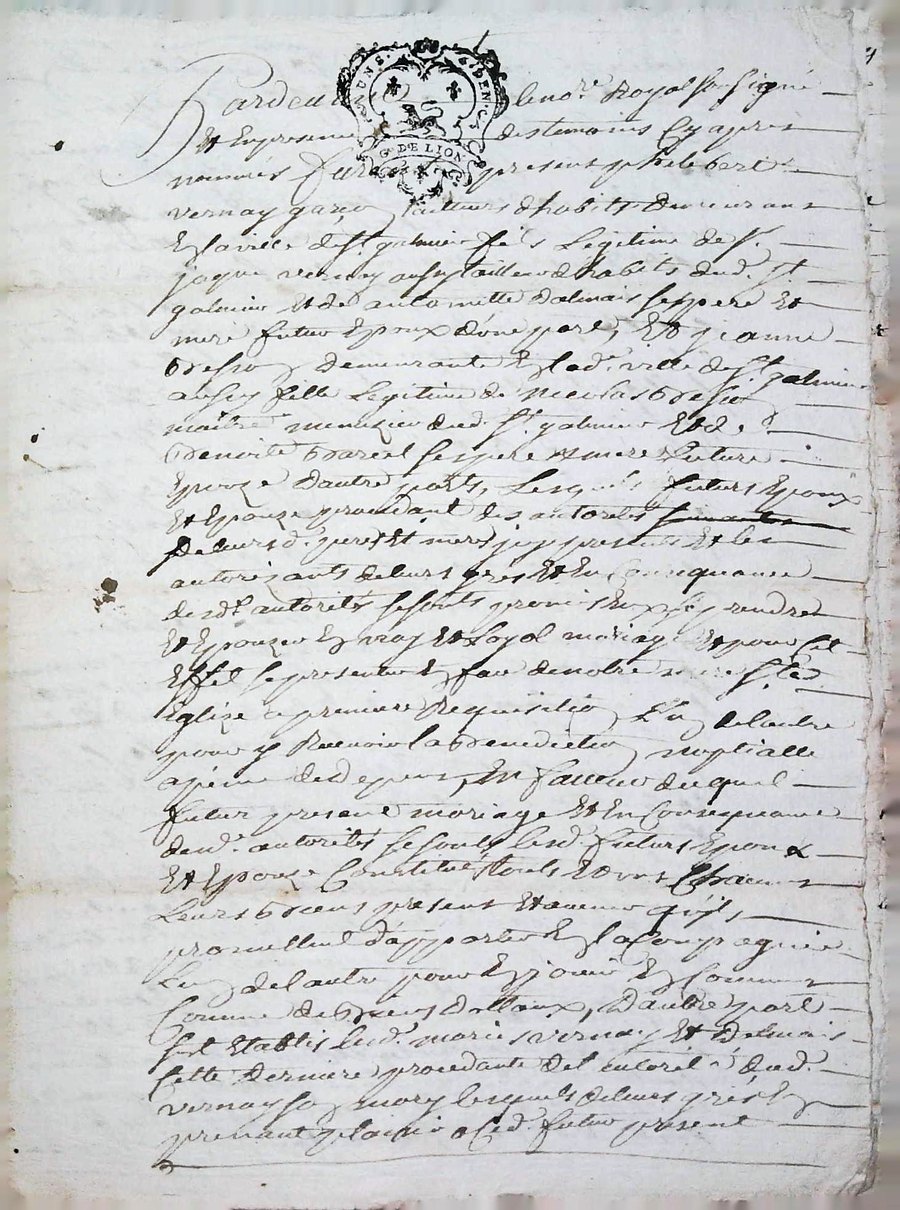 UNS. 4 DEN.
G. DE LION
Pardevant le no.re Royal soussigné
Et En presence des temoins Cy apres
nommés furent present philebert
vernay garçon tailleur d'habits demeurant
En la ville de st. galmier fils Legitime de s.r
jaque vernay aussy tailleur d'habits dud. st
galmier Et de antoinette dalmais ses pere Et
mere futur Epoux d'une part, Et jeanne
demeurante En lad. ville de st galmier
aussy fille Legitime de nicolas
maître menuizier dud. st. galmier Et de
Benoite ses pere Et mere future
Epouze d'autre part, Lesquels futurs Epoux
Et Epouze procedant des autorités
de leurs d. peres Et meres icy presents Et les
autorizants de leurs grés Et En Consequance
desd. autorités se sont promis Eux prendre
Et Epouzer En vray Et Loyal mariage Et pour Cet
Effet se presenter En face de notre mere st.e
Eglize a premiere Requisition L'un de l'autre
pour y Recevoir la Benediction nuptialle
a peine de depens, En faveur duquel
futur present mariage Et En Consequance
desd. autorités se sont lesd. futurs Epoux
Et Epouze Constitué touts Et uns Chacuns
Leurs Biens present Et avenir qu'ils
promettent d'apporter En la Compagnie
L'un de l'autre pour En jouir En Commun
Comme de Biens dottaux, D'autre part
sont Etablis lesd. mariés vernay Et dalmais
cette derniere procedante de l'autorité dud.
vernay son mary lesquels de leurs grés
prenant plaisir a Ced. futur present